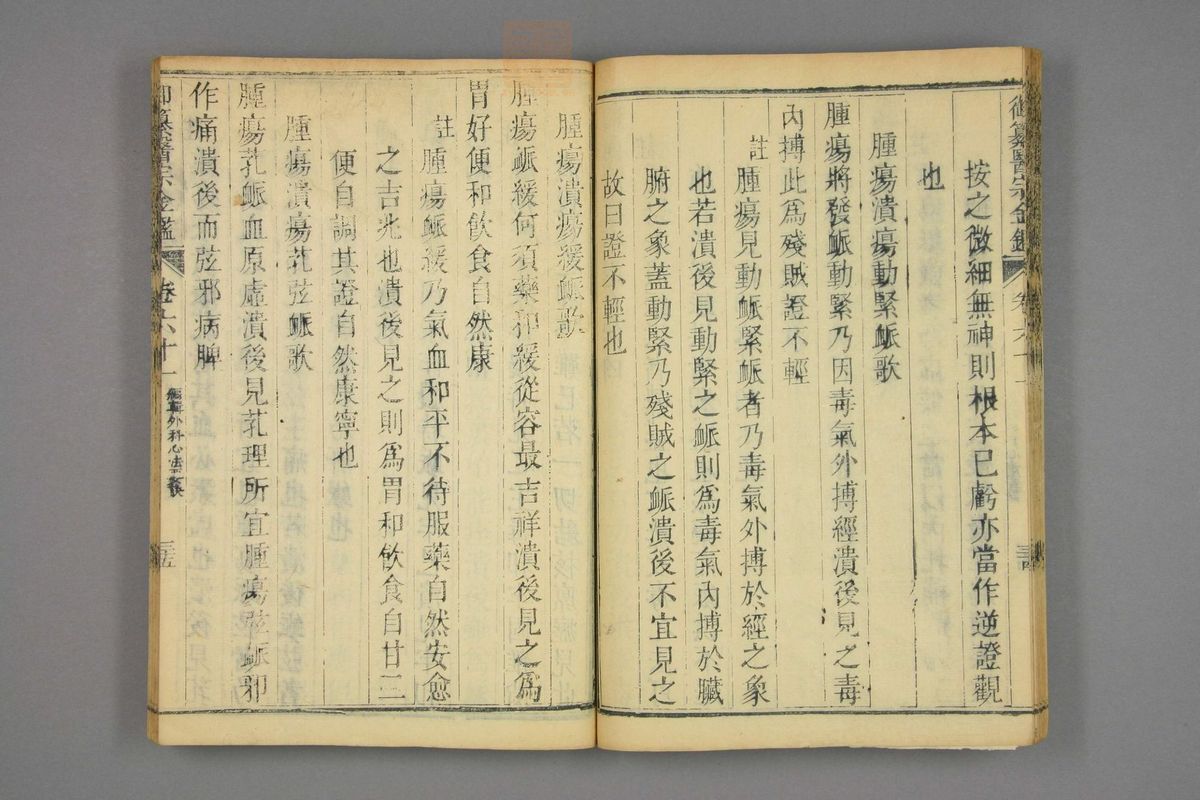 御纂醫宗金鑑
卷六十一
按之微細無神則根本已虧亦當作逆證觀
也
腫瘍潰瘍動緊䘑歌
腫瘍將發䘑動緊乃因毒氣外搏經潰後見之毒
內搏此爲殘賊證不輕
註
腫瘍見動䘑緊䘑者乃毒氣外搏於經之象
也若潰後見動緊之䘑則爲毒氣內搏於臟
腑之象蓋動緊乃殘賊之䘑潰後不宜見之
故曰證不輕也
腫瘍潰瘍緩䘑歌
腫瘍䘑緩何須藥和緩從容最吉祥潰後見之爲
胃好便和飲食自然康
註
腫瘍䘑緩乃氣血和平不待服藥自然安愈
之吉兆也潰後見之則爲胃和飲食自甘二
便自調其證自然康寧也
腫瘍潰瘍芤弦䘑歌
腫瘍芤䘑血原虛潰後見芤理所宜腫瘍弦䘑邪
作痛潰後而弦邪病脾
御纂醫宗金鑑
卷六十一
編輯外科心法要訣
三五